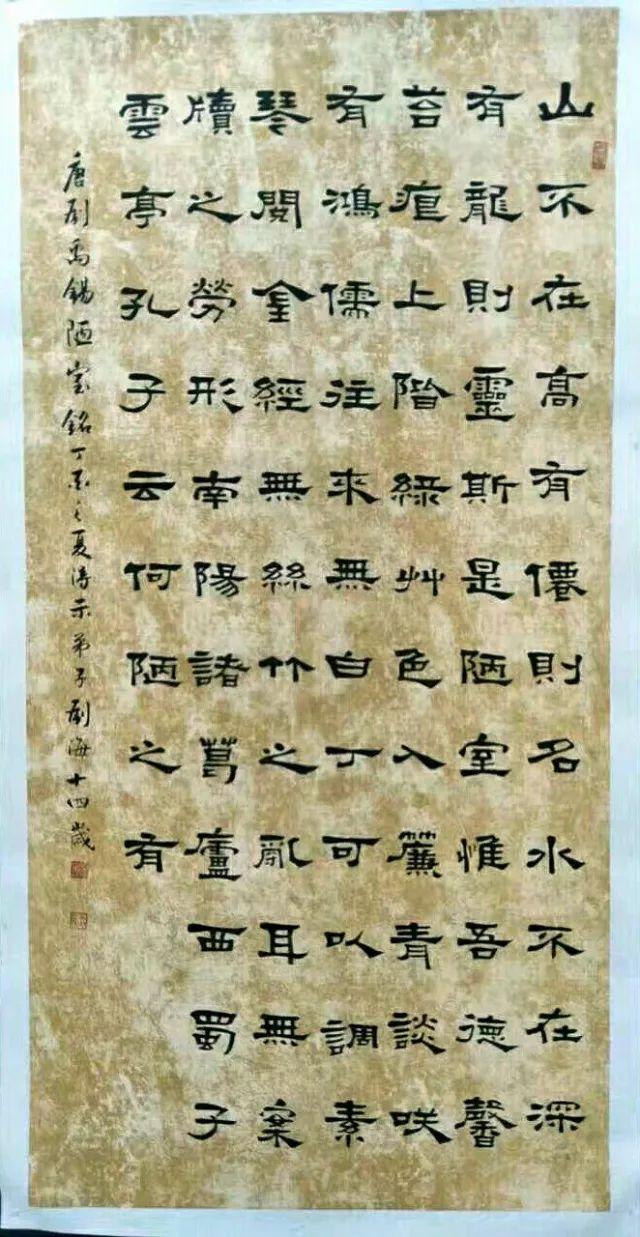 山不在高有僊則名水不在深
有龍則靈斯是陋室惟吾德馨
苔痕上階緑艸色入簾青談咲
有鴻儒往来無白丁可以調素
琴閱金經無絲竹之亂耳無案
牘之勞形南陽諸葛廬西蜀子
雲亭孔子云何陋之有
唐刘禹錫陋室銘丁酉之夏弟子刘海十四歲